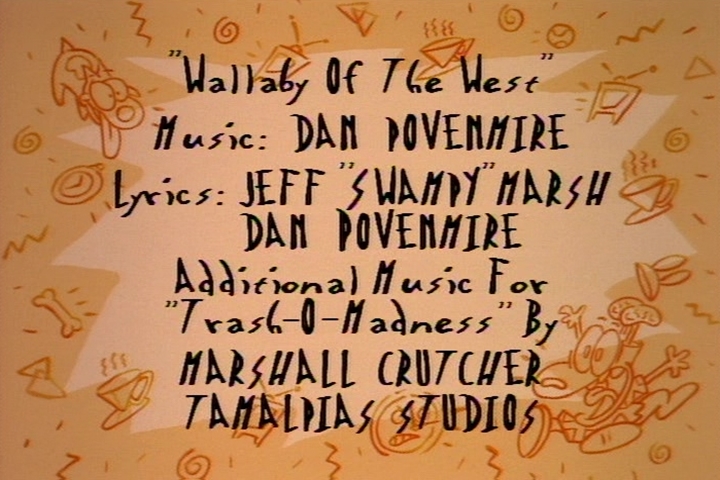 "Wallaby Of The West"
Music: DAN POVENMIRE
Lyrics: JEFF "SWAMPY" MARSH
DAN POVENMIRE
Additional Music For
"Trash-O-Madness" By
MARSHALL CRUTCHER
TAMALPIAS STUDIOS